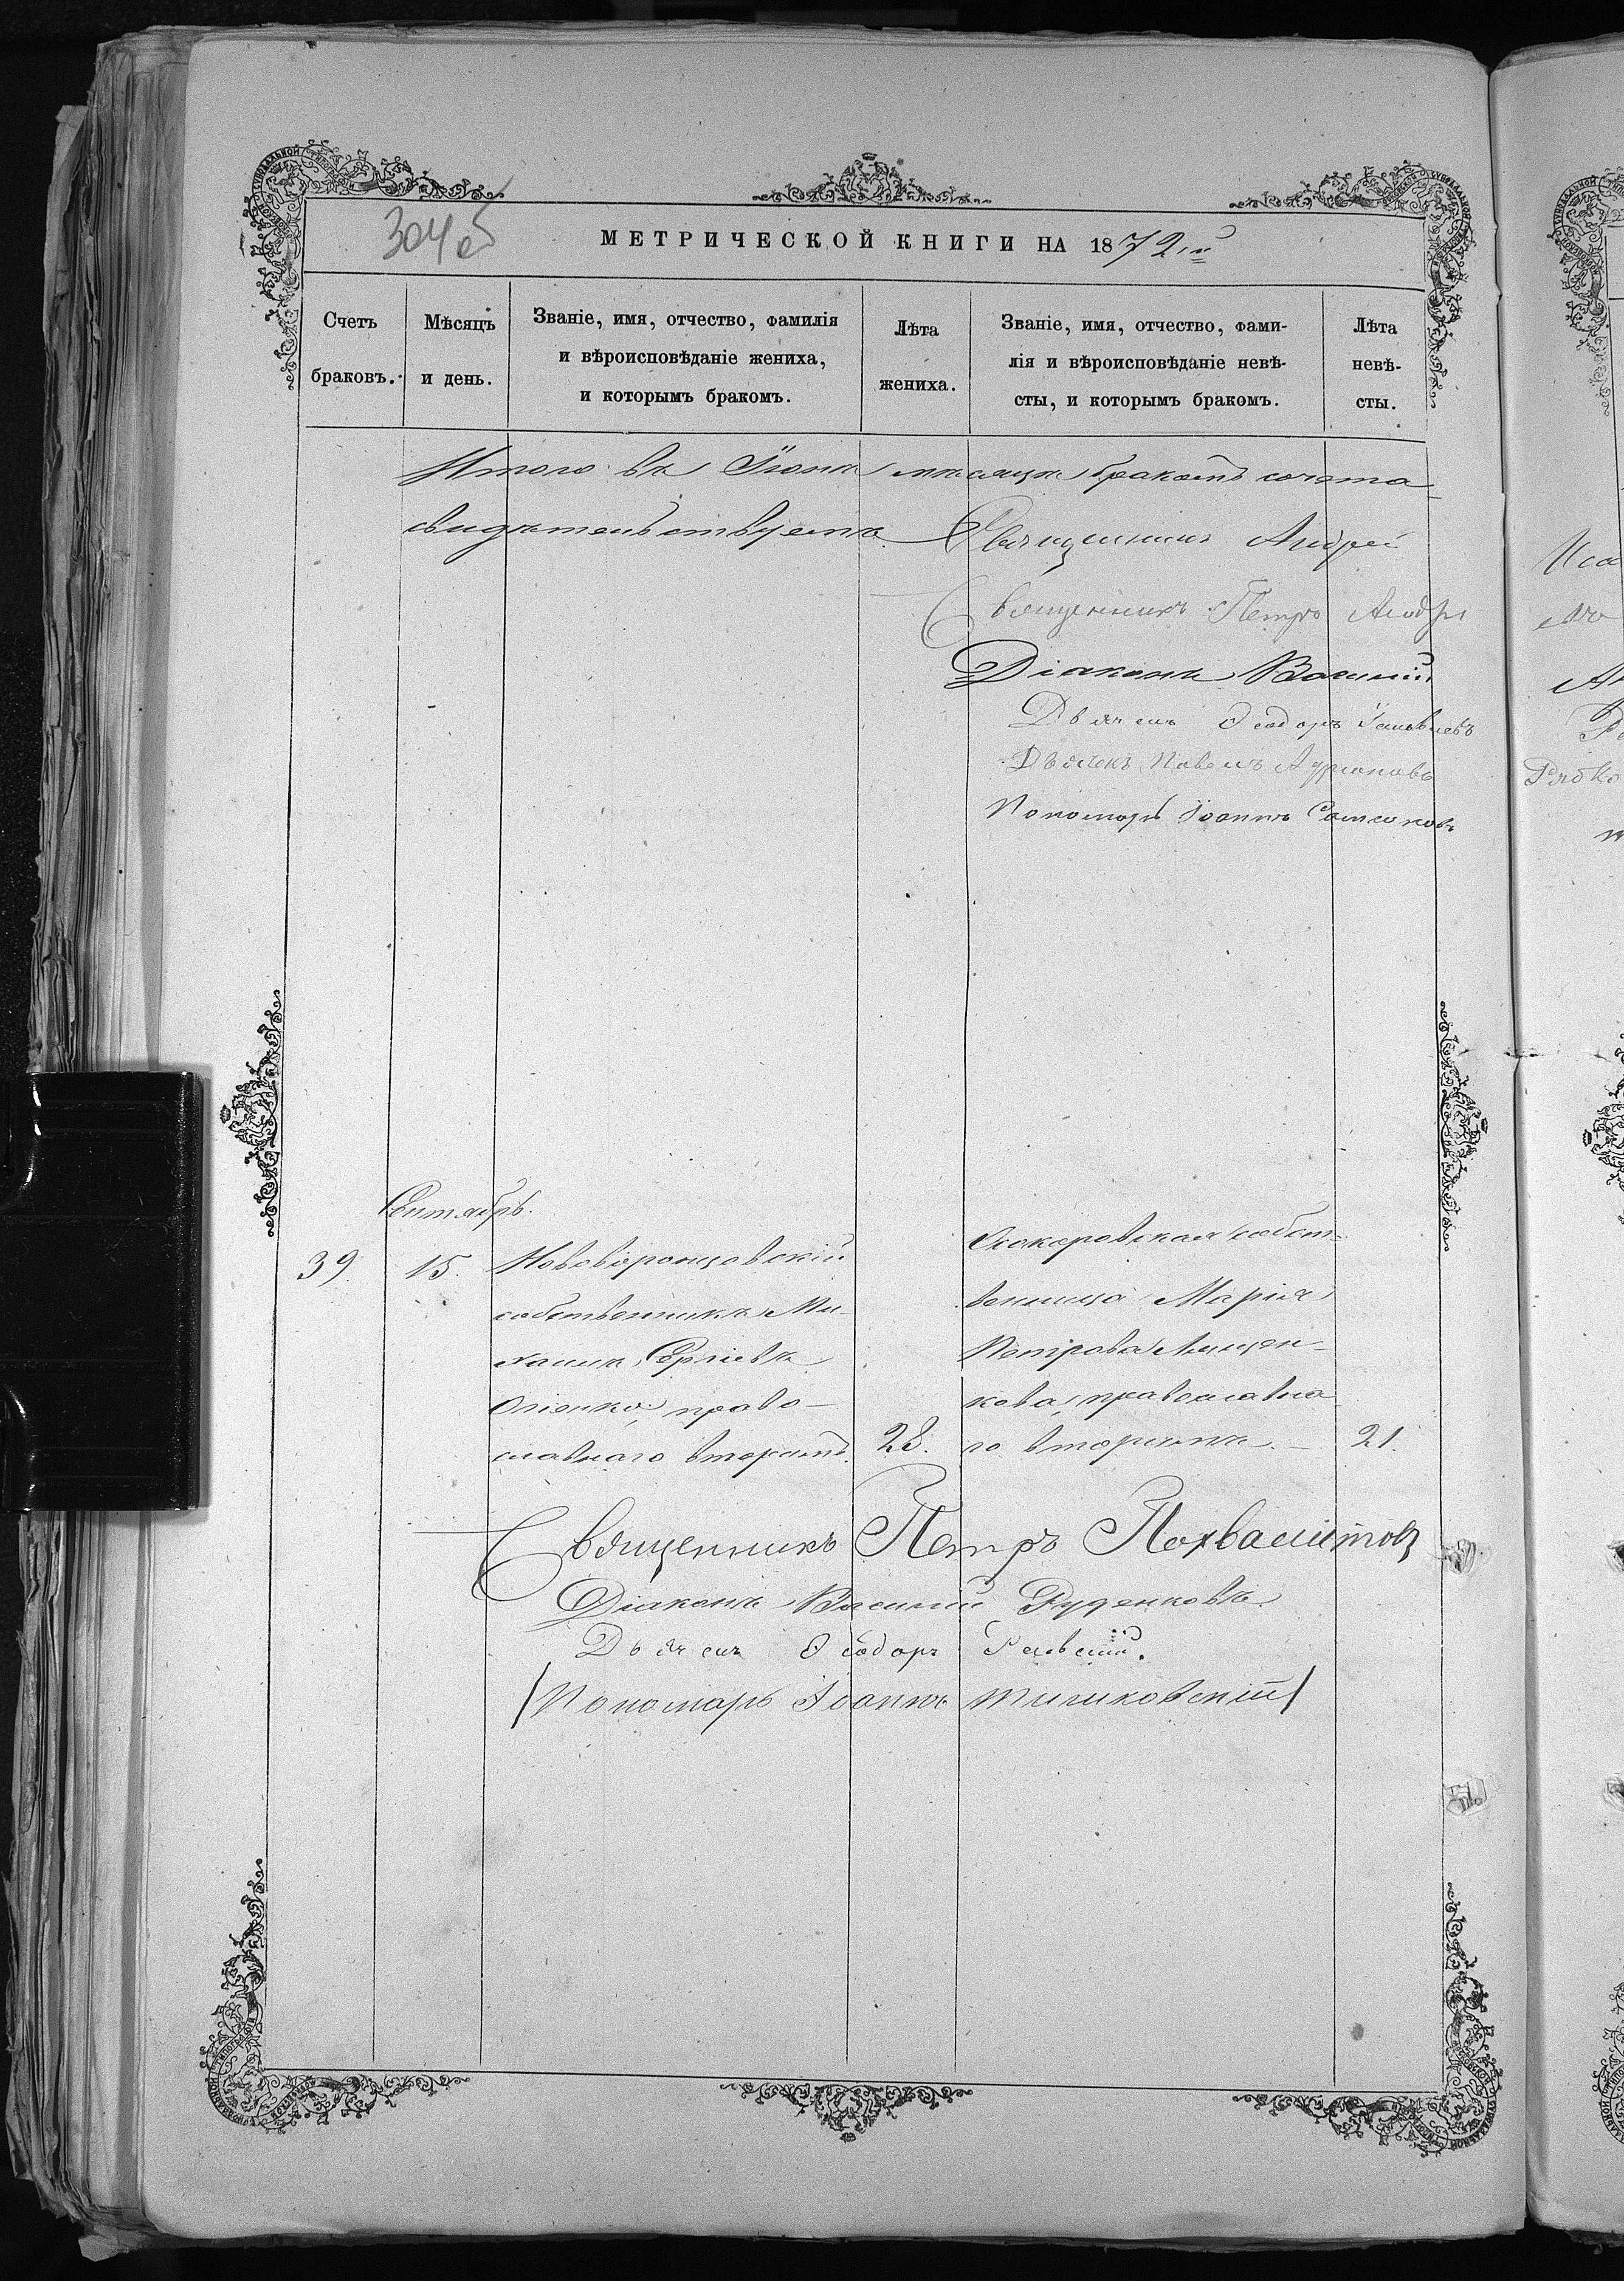 304об
МЕТРИЧЕСКОЙ КНИГИ НА 1872й
Счетъ
браковъ.
Мѣсяцъ
и день.
Званіе, имя, отчество, фамилія
и вѣроисповѣданіе жениха,
и которымъ бракомъ.
Лѣта
жениха.
Званіе, имя, отчество, фами-
лія и вѣроисповѣданіе невѣ-
сты, и которымъ бракомъ.
Лѣта
невѣ-
сты.
Итого въ Іюнѣ мѣсяцѣ бракомъ сочета-
свидѣтельствуемъ. Священникъ Андрей
Священникъ Петръ
Діаконъ Василій
Дьячекъ Ѳеодоръ
Дьячекъ Павелъ
Пономарь Іоаннъ
Сентябрь.
39. 15. Нововоронцовскій
собственникъ Ми-
хаилъ Сергіевъ
право-
славнаго вторымъ. 28.
собст-
венница Марія
Петрова
кова, православна-
го вторымъ. 21.
Священникъ Петръ Похвалитовъ
Діаконъ Василій Руденковъ
Дьячекъ Ѳеодоръ
Пономарь Іоаннъ